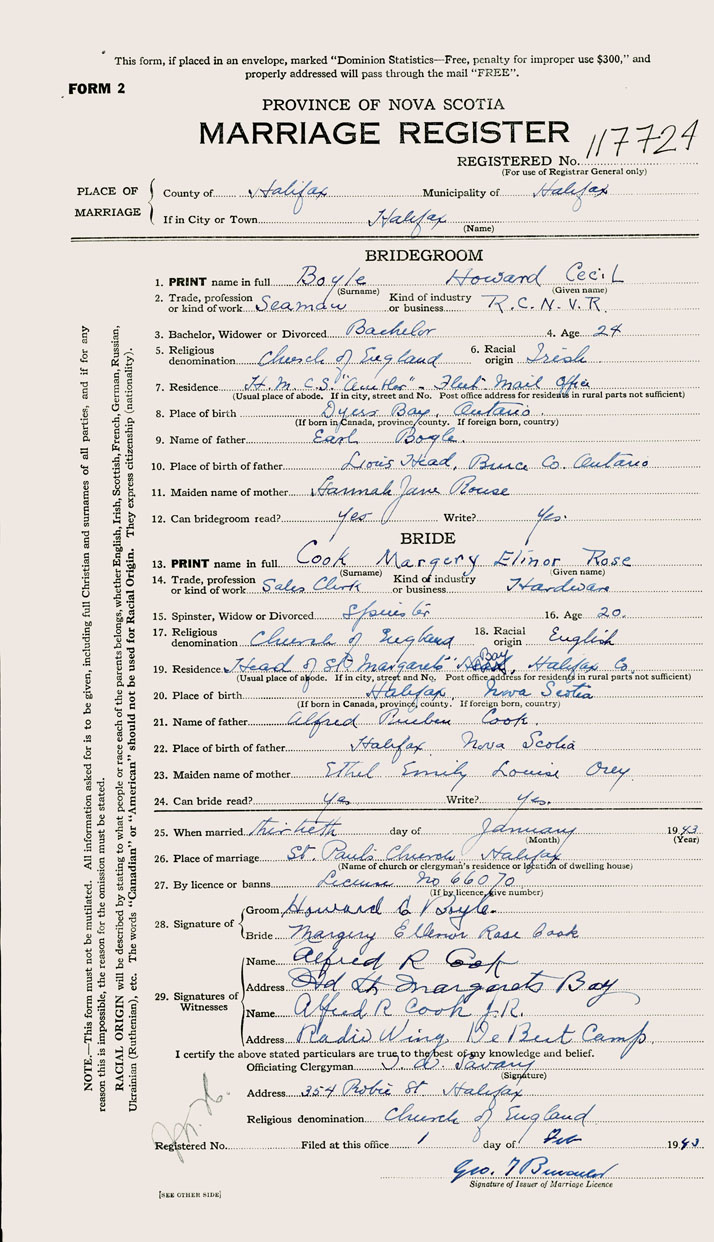 This form, if placed in an envelope, marked "Dominion Statistics—Free, penalty for improper use $300," and
properly addressed will pass through the mail "FREE".
FORM 2
PROVINCE OF NOVA SCOTIA
MARRIAGE REGISTER
117724
REGISTERED No.
(For use of Registrar General only)
PLACE OF MARRIAGE
County of Halifax Municipality of Halifax
If in City or Town Halifax
(Name)
BRIDEGROOM
1. PRINT name in full Boyle Howard Cecil
(Surname) (Given name)
2. Trade, profession or kind of work Seaman Kind of industry or business R.C.N.V.R.
3. Bachelor, Widower or Divorced Bachelor 4. Age 24
5. Religious denomination Church of England 6. Racial origin Irish
7. Residence H.M.C.S. - Fleet Mail Office
(Usual place of abode. If in city, street and No. Post office address for residents in rural parts not sufficient)
8. Place of birth Dyers Bay, Ontario
(If born in Canada, province, county. If foreign born, country)
9. Name of father Earl Boyle.
10. Place of birth of father Lions Head, Bruce Co. Ontario
11. Maiden name of mother Hannah Jane Rouse
12. Can bridegroom read? yes Write? Yes.
BRIDE
13. PRINT name in full Cook Margery Elinor Rose
(Surname) (Given name)
14. Trade, profession or kind of work Sales Clerk Kind of industry or business Hardware
15. Spinster, Widow or Divorced Spinster 16. Age 20.
17. Religious denomination Church of England 18. Racial origin English
19. Residence Head of St. Margarets Bay Halifax Co.
(Usual place of abode. If in city, street and No. Post office address for residents in rural parts not sufficient)
20. Place of birth Halifax, Nova Scotia
(If born in Canada, province, county. If foreign born, country)
21. Name of father Alfred Rueben Cook.
22. Place of birth of father Halifax Nova Scotia
23. Maiden name of mother Ethel Emily Louise Orey.
24. Can bride read? yes Write? Yes.
25. When married thirtieth day of January 1943
(Month) (Year)
26. Place of marriage St. Paul's Church Halifax
(Name of church or clergyman's residence or location of dwelling house)
27. By licence or banns License no 66070
(If by licence, give number)
28. Signature of
Groom Howard C Boyle.
Bride Margery Ellenor Rose Cook
29. Signatures of Witnesses
Name Alfred R Cook
Address Hd St Margarets Bay
Name Alfred R Cook J.R.
Address Radio Wing, De Bert Camp.
I certify the above stated particulars are true to the best of my knowledge and belief.
Officiating Clergyman Savary
(Signature)
Address 354 Robie St. Halifax
Religious denomination Church of England
Registered No. Filed at this office 1 day of Feb 1943
Geo.
Signature of Issuer of Marriage Licence
[SEE OTHER SIDE]
NOTE.—This form must not be mutilated. All information asked for is to be given, including full Christian and surnames of all parties, and if for any
reason this is impossible, the reason for the omission must be stated.
RACIAL ORIGIN will be described by stating to what people or race each of the parents belongs, whether English, Irish, Scottish, French, German, Russian,
Ukrainian (Ruthenian), etc. The words "Canadian" or "American" should not be used for Racial Origin. They express citizenship (nationality).